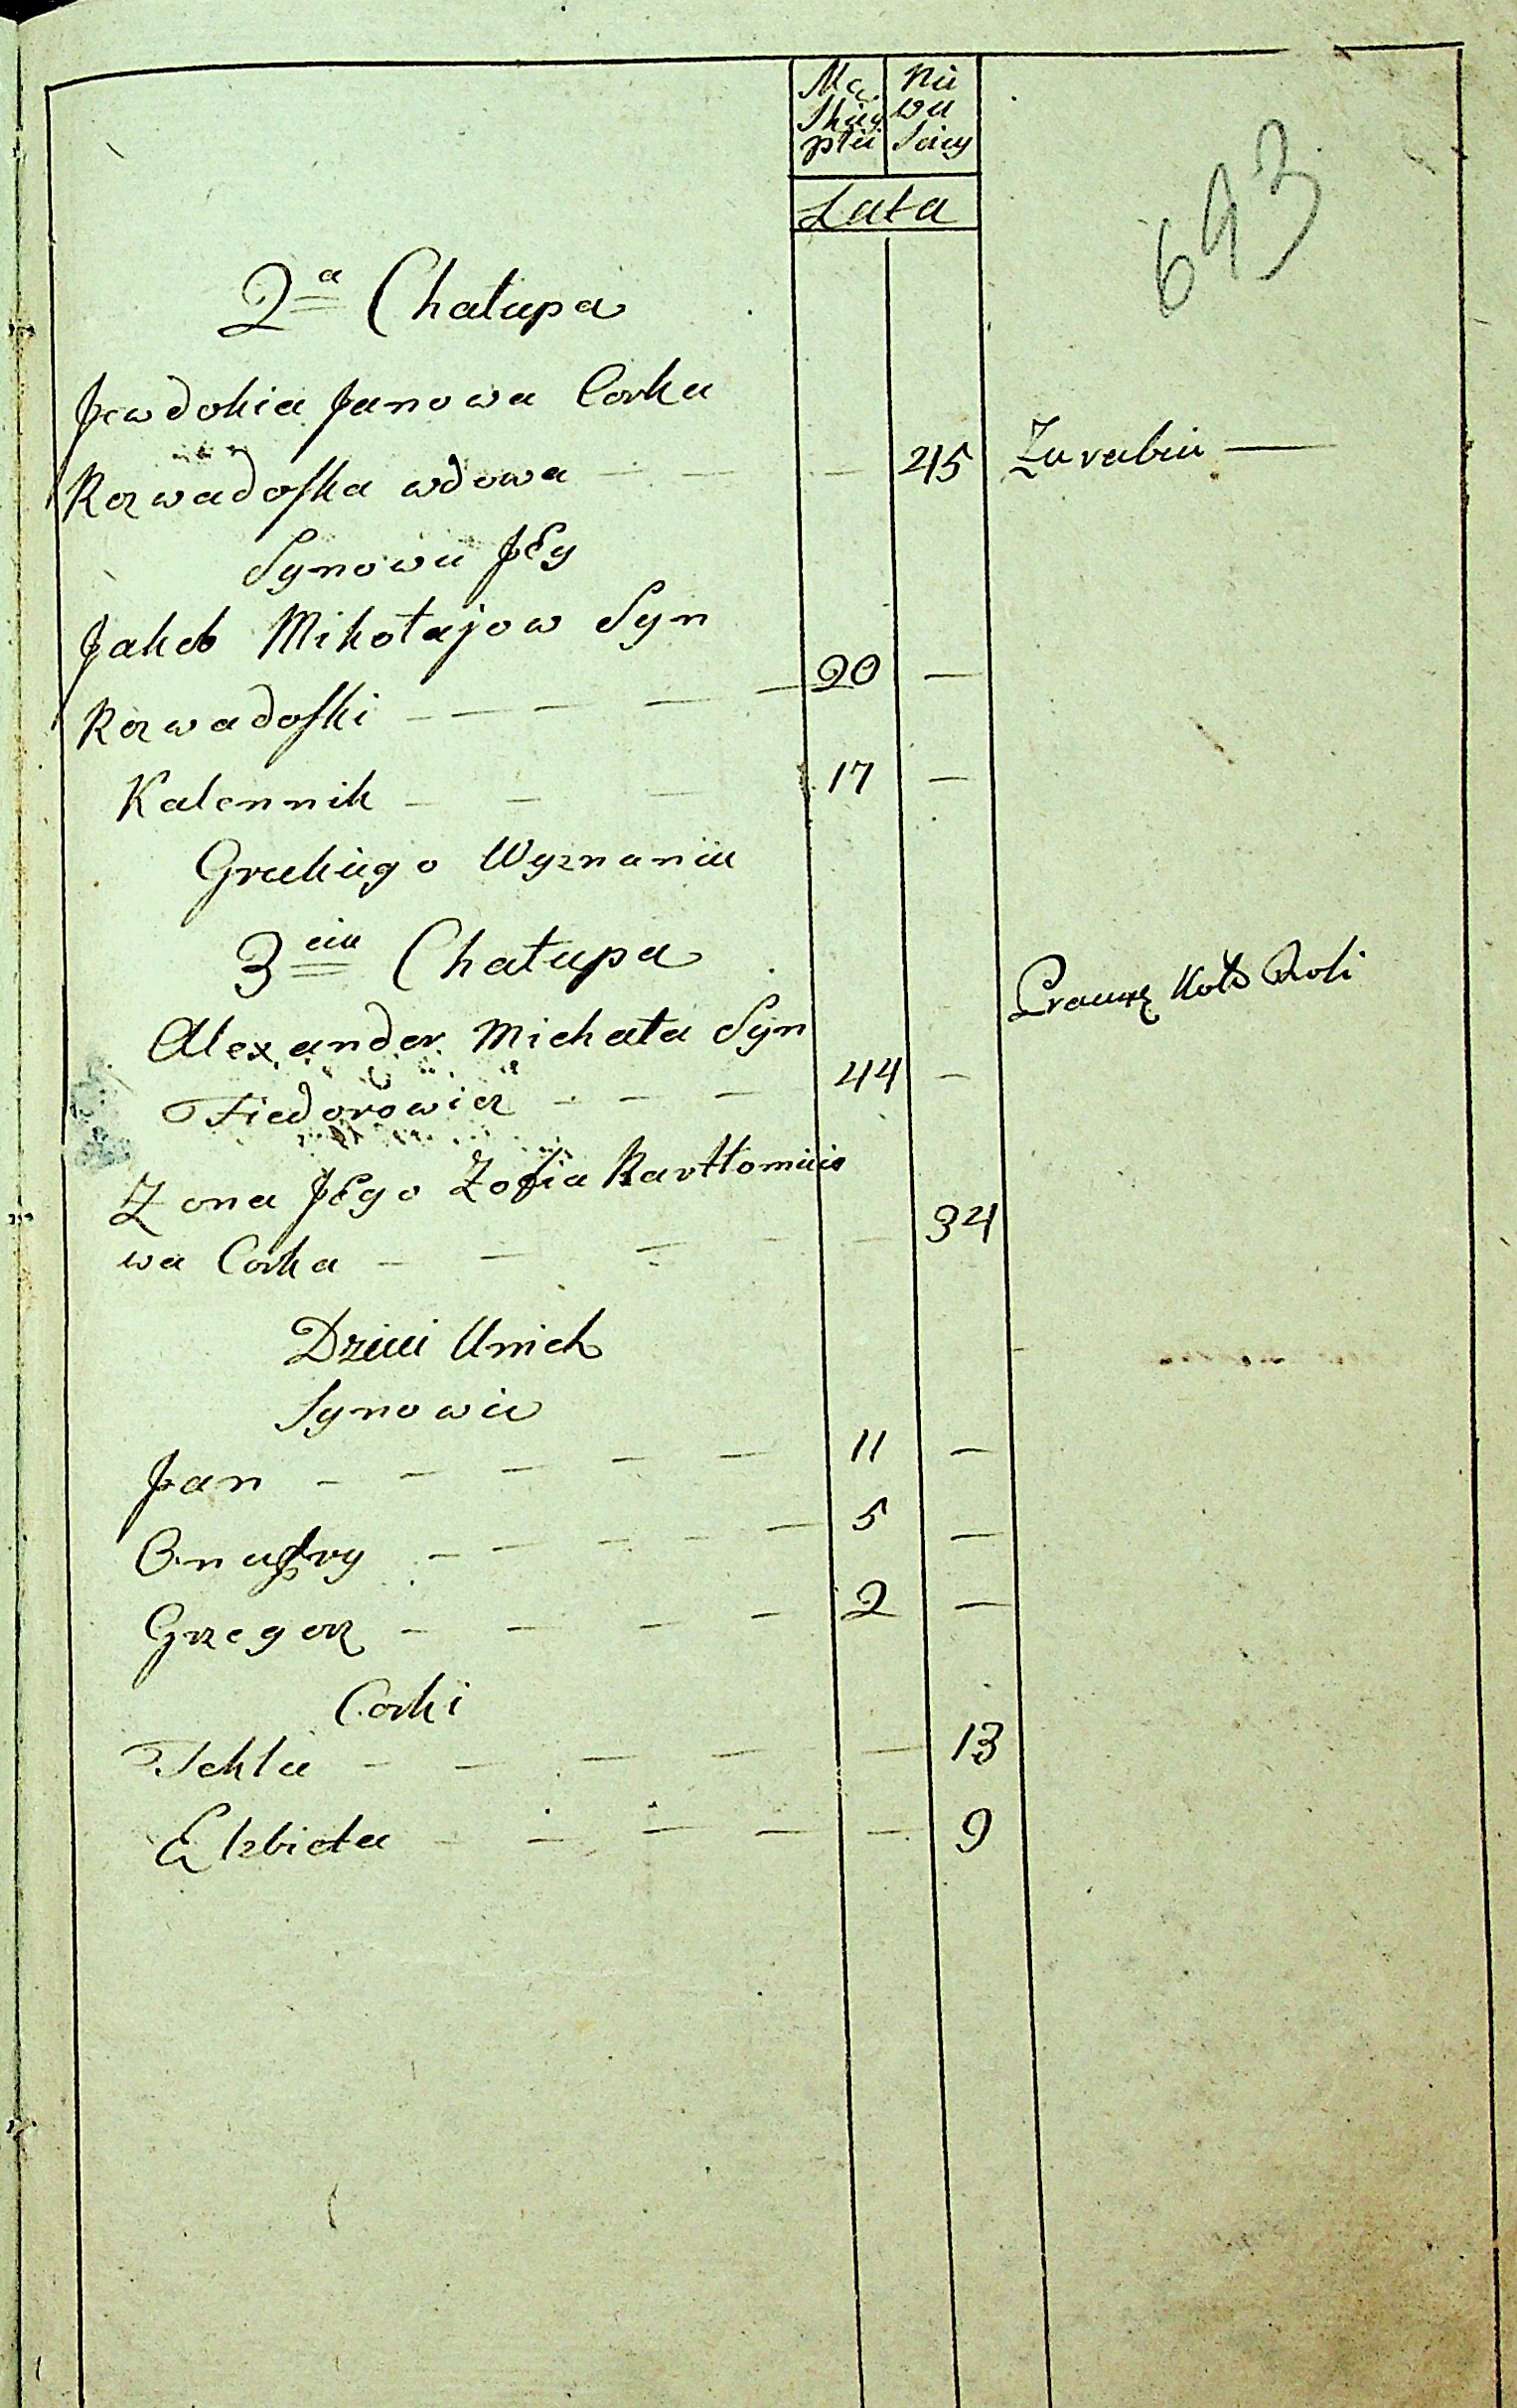 Mę Nie
Skiey wie
płci Sciey
Lata
693
2a Chałupa
Jewdokia Janowa Corka
Rozwadoska wdowa — — — 45 Zarabia —
Synowie JEy
Jakob Mikołajow Syn
Rozwadoski — — — — 20 —
Kalennik — — — 17 —
Greckiego Wyznania
3cia Chałupa
Alexander Michała Syn Pracuie koło Roli
Fiedorowicz — — — 44 —
Zona JEgo Zofia Bartłomieio
wa Corka — — — — — 34
Dzieci Unich
Synowie
Jan — — — — — 11 —
Onufry — — — — — 5 —
Grzegorz — — — — 2 —
Corki
Tekla — — — — — 13
Elzbieta — — — — — 9